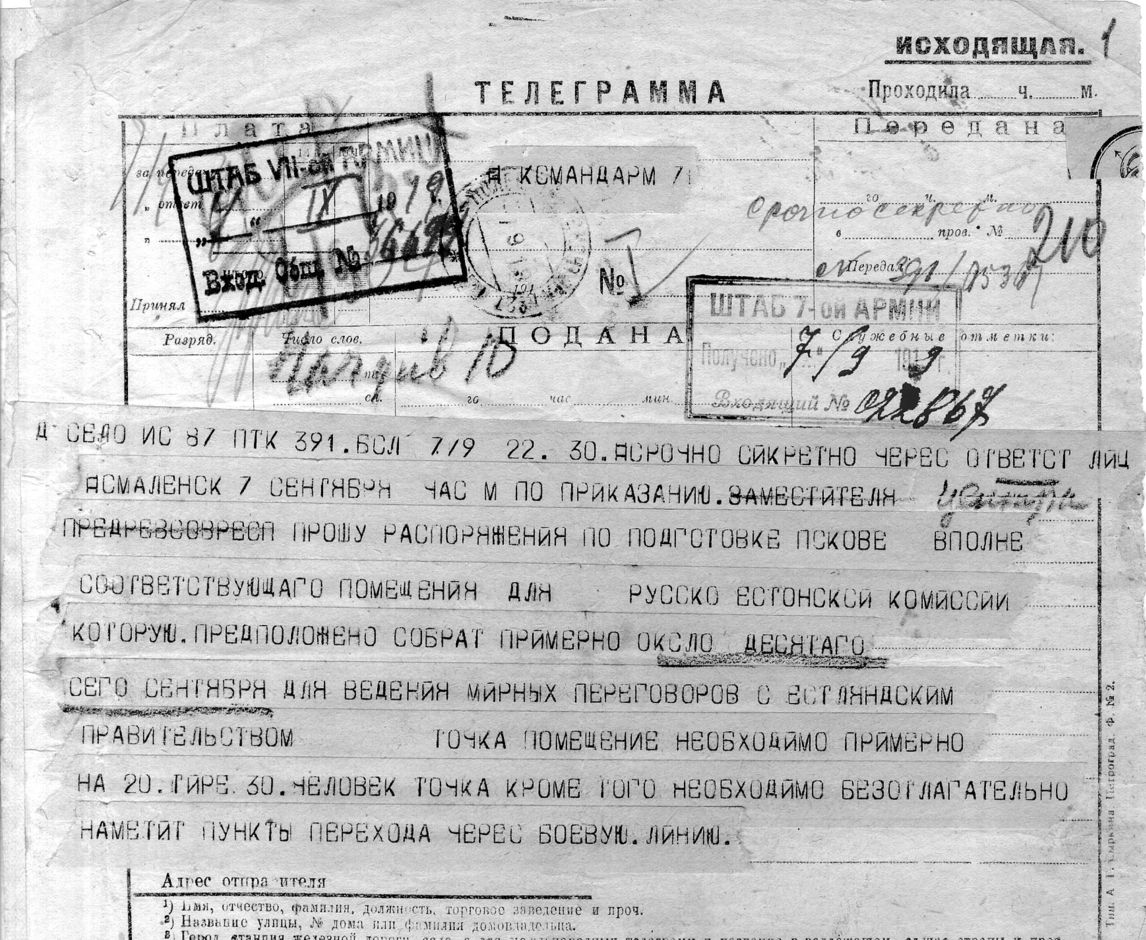 ИСХОДЯЩАЯ. 1
ТЕЛЕГРАММА
Проходила ч. м.
Плата
Передана
ШТАБ VII-ой АРМИИ
IX 1919 г.
Вход. Общ. №
А КОМАНДАРМ 7
срочно секретно
го ч. м.
в пров. № 210
Передал
391/
№ I
Принял
ШТАБ 7-ой АРМИИ
Получено „7“/9 1919 г.
Входящий № 022867
Разряд. Число слов. ПОДАНА Служебные отметки:
го час. мин.
Д СЕЛО ИС 87 ПТК 391.БСЛ 7/9 22. 30.АСРОЧНО СИКРЕТНО ЧЕРЕС ОТВЕТСТ ЛИЦ
АСМАЛЕНСК 7 СЕНТЯБРЯ ЧАС М ПО ПРИКАЗАНИЮ.ЗАМЕСТИТЕЛЯ
ПРЕДРЕВСОВРЕСП ПРОШУ РАСПОРЯЖЕНИЯ ПО ПОДГОТОВКЕ ПСКОВЕ ВПОЛНЕ
СООТВЕТСТВУЮЩАГО ПОМЕЩЕНИЯ ДЛЯ РУССКО ЕСТОНСКОЙ КОМИССИИ
КОТОРУЮ.ПРЕДПОЛОЖЕНО СОБРАТ ПРИМЕРНО ОКОЛО ДЕСЯТАГО
СЕГО СЕНТЯБРЯ ДЛЯ ВЕДЕНИЯ МИРНЫХ ПЕРЕГОВОРОВ С ЕСТЛЯНДСКИМ
ПРАВИТЕЛЬСТВОМ ТОЧКА ПОМЕЩЕНИЕ НЕОБХОДИМО ПРИМЕРНО
НА 20.ТИРЕ.30.ЧЕЛОВЕК ТОЧКА КРОМЕ ТОГО НЕОБХОДИМО БЕЗОТЛАГАТЕЛЬНО
НАМЕТИТ ПУНКТЫ ПЕРЕХОДА ЧЕРЕС БОЕВУЮ.ЛИНИЮ.
Адрес отправителя
¹) Имя, отчество, фамилия, должность, торговое заведение и проч.
²) Название улицы, № дома или фамилия домовладельца.
Петроград. Ф. № 2.